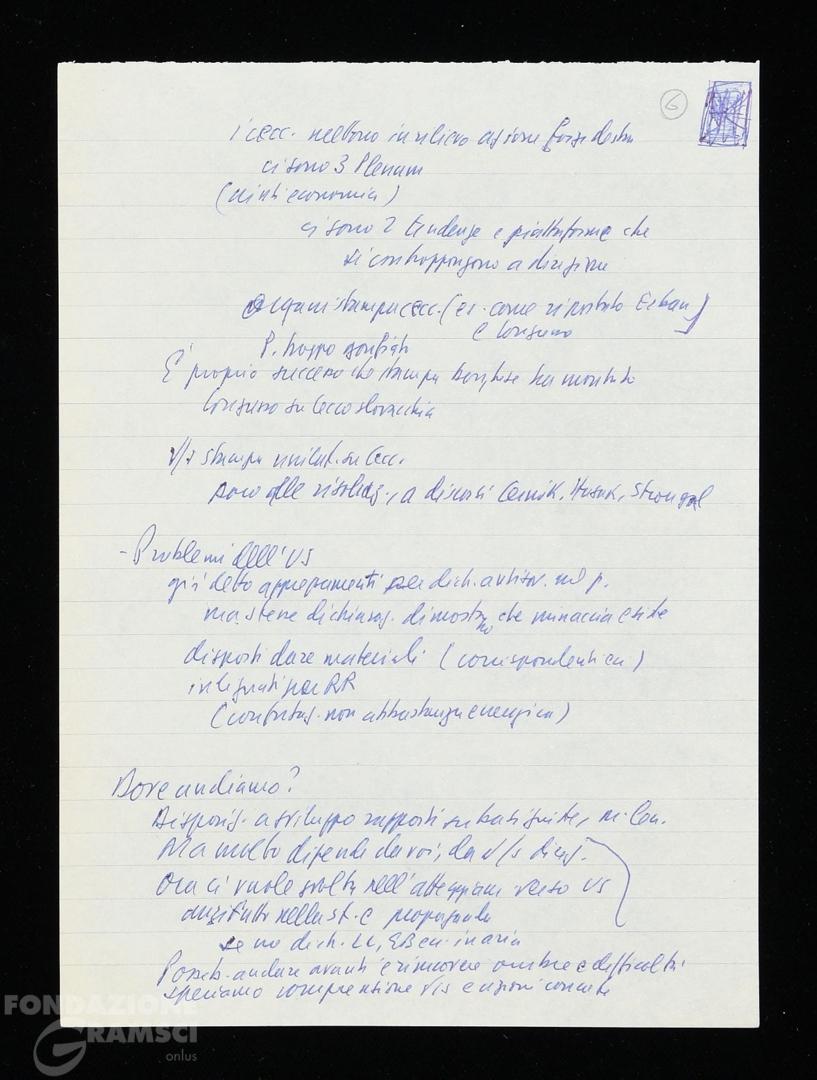 6
i cecc. mettono in rilievo azione forze destra
ci sono 3 Plenum
(economia)
ci sono 2 tendenze e piattaforme che
si contrappongono a direzione
Organi stampa cecc. (es. come riportato Erban)
e Longuno
P. troppo gonfiato
È proprio successo che stampa borghese ha montato
su Cecoslovacchia
V/s stampa unilat. su Cecc.
poco alle risoluz., a discorsi Cernik, Husak, Strougal
- Problemi dell'US
già detto apprezzamenti per dich. antisov. nel p.
ma stesse dichiaraz. dimostrano che minaccia esiste
disposti dare materiali (corrispondenti ca)
insegnati per RR
(confutaz. non abbastanza energica)
Dove andiamo?
Disposiz. a sviluppo rapporti su basi giuste, m-len.
Ma molto dipende da voi, da v/s direz.
Ora ci vuole svolta nell'atteggiam verso US
anzitutto nella st. e propaganda
se no dich. LL, EB ecc. in aria
Possib. andare avanti e rimuovere ombre e difficoltà
speriamo comprensione v/s e azioni concrete
FONDAZIONE
GRAMSCI
onlus